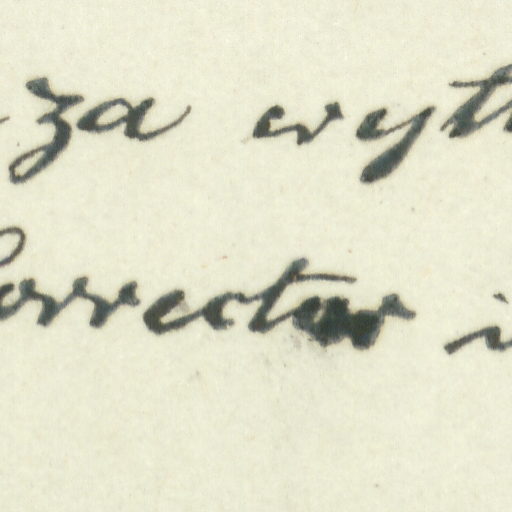 za wyt
Corrector i